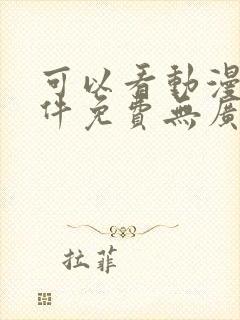 可以看動漫
件免費無廣
拉菲